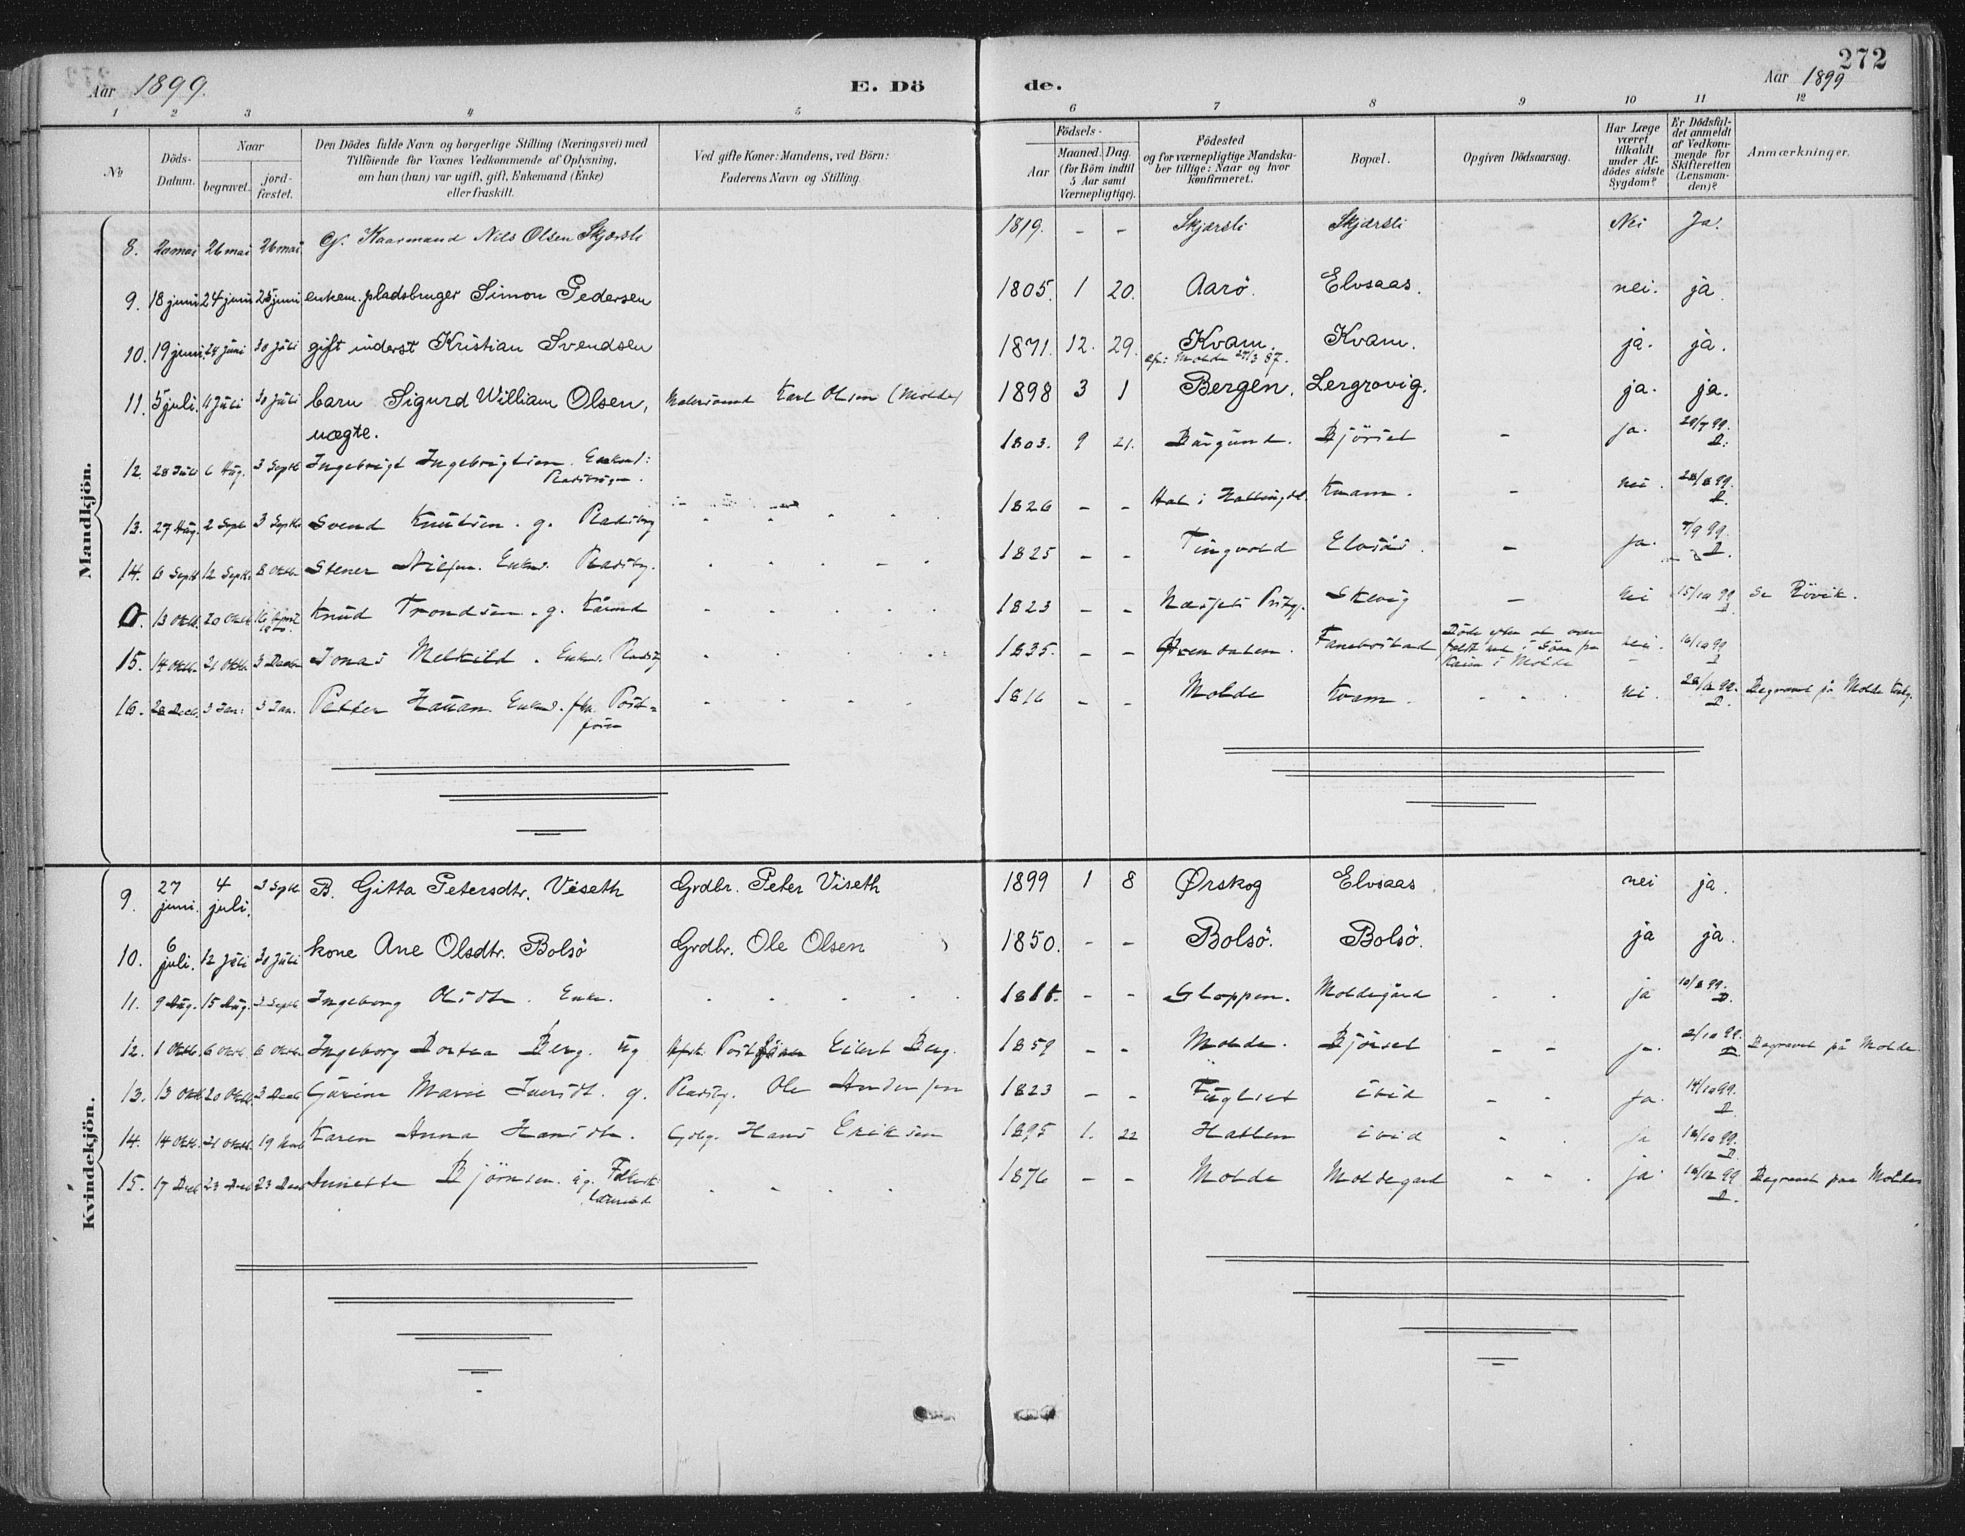 272
Aar 1899. E. Dö de. Aar 1899
1 2 3 4 5 6 7 8 9 10 11 12
No
Döds-Datum.
Naar
begravet.
jord-fæstet.
Den Dödes fulde Navn og borgerlige Stilling (Næringsvei) med
Tilföiende for Voxnes Vedkommende af Oplysning,
om han (hun) var ugift, gift, Enkemand (Enke)
eller fraskilt.
Ved gifte Koner: Mandens, ved Börn:
Faderens Navn og Stilling.
Födsels-
Aar
Maaned. Dag.
(for Börn indtil
5 Aar samt
Værnepligtige).
Födested
og for værnepligtige Mandska-
ber tillige: Naar og hvor
konfirmeret.
Bopæl.
Opgiven Dödsaarsag.
Har Læge
været
tilkaldt
under Af-
dödes sidste
Sygdom?
Er Dödsfal-
det anmeldt
af Vedkom-
mende for
Skifteretten
(Lensman-
den)?
Anmærkninger.
Mandkjön.
8. 20 mai 26 mai 26 mai G. Kaarmand Nils Olsen Skjærsli 1819. - - Skjærsli Skjærsli Nei Ja.
9. 18 juni 24 juni 25 juni enkem. pladsbruger Simon Pedersen 1805. 1 20. Aarö. Elvsaas. nei. ja.
10. 19 juni 24 juni 30 juli gift inderst Kristian Svendsen 1871. 12. 29. Kvam. Kvam. ja. ja.
Molde 87.
11. 5 juli. 11 juli 30 juli barn Sigurd William Olsen, Karl Olsen (Molde) 1898 3 1 Bergen. Lergrovig. ja. ja.
uægte.
12. 28 Juli 6 Aug. 3 Septb Ingebrigt Ingebrigtsen. Enkm: 1803. 9 21. Borgund. Bjørset - ja. 29/7 99.
13. 27 Aug. 2 Septb 3 Septb Svend Knutsen. g. Pladsbrg 1826 - - Hol i Hallingd. Kvam. - nei. 28/8 99.
14. 6 Septb 12 Septb 8 Oktb Stener Nilsen. Enkm. Pladsbg. 1825 - - Tingvold Elvsås. - ja. 7/9 99.
0. 13 Oktb 20 Oktb Knud Trondsen. g. Kårmd 1823 - - Næsset Skevig - nei 15/10 99 Se Røvik.
15. 14 Oktb 21 Oktb 3 Decb Jonas Melkild. Enkm. Pladsbg 1835. - - Fanebostad nei. 16/10 99
i Molde
16. 28 Decb 3 Jan: 3 Jan. Petter Hauan. Enkm. 1816 - - Molde Kvam. - - - nei. 28/12 99. Begravet på Molde Kirkg.
Kvindekjön.
9. 27 juni. 4 juli. 3 Septb B. Gitta Petersdtr. Viseth Grdbr. Peter Viseth 1899 1 8 Ørskog Elvsaas nei ja.
10. 6 juli. 12 juli 30 juli kone Ane Olsdtr. Bolsö Grdbr. Ole Olsen 1850. - - Bolsö. Bolsö. ja ja.
11. 9 Aug. 15 Aug. 3 Septb Ingeborg Olsdtr. Enke. - - Gloppen. Moldegård - - ja 10/8 99.
12. 1 Oktb. 6 Oktb. 6 Oktb. Ingeborg Dortea Berg. ug Eilert Berg. 1859 - - Molde. Bjørset - - ja. 2/10 99. Begravet på Molde.
13. 13 Oktb 20 Oktb 3 Decb Gurine Marie g. Pladsbg. Ole Andersen 1823 - - Fuglset ibid - - ja. 14/10 99.
14. 14 Oktb. 21 Oktb. 19 Nov Karen Anna Hansdtr. Gdbg. Hans Eriksen 1895 1. 22 Hatlen ibid - ja 16/10 99.
15. 17 Decb 23 Decb 23 Decb Annette Bjørnsen. ug. 1876 - - Molde Moldegaard - - - ja 18/12 99 Begravet paa Molde